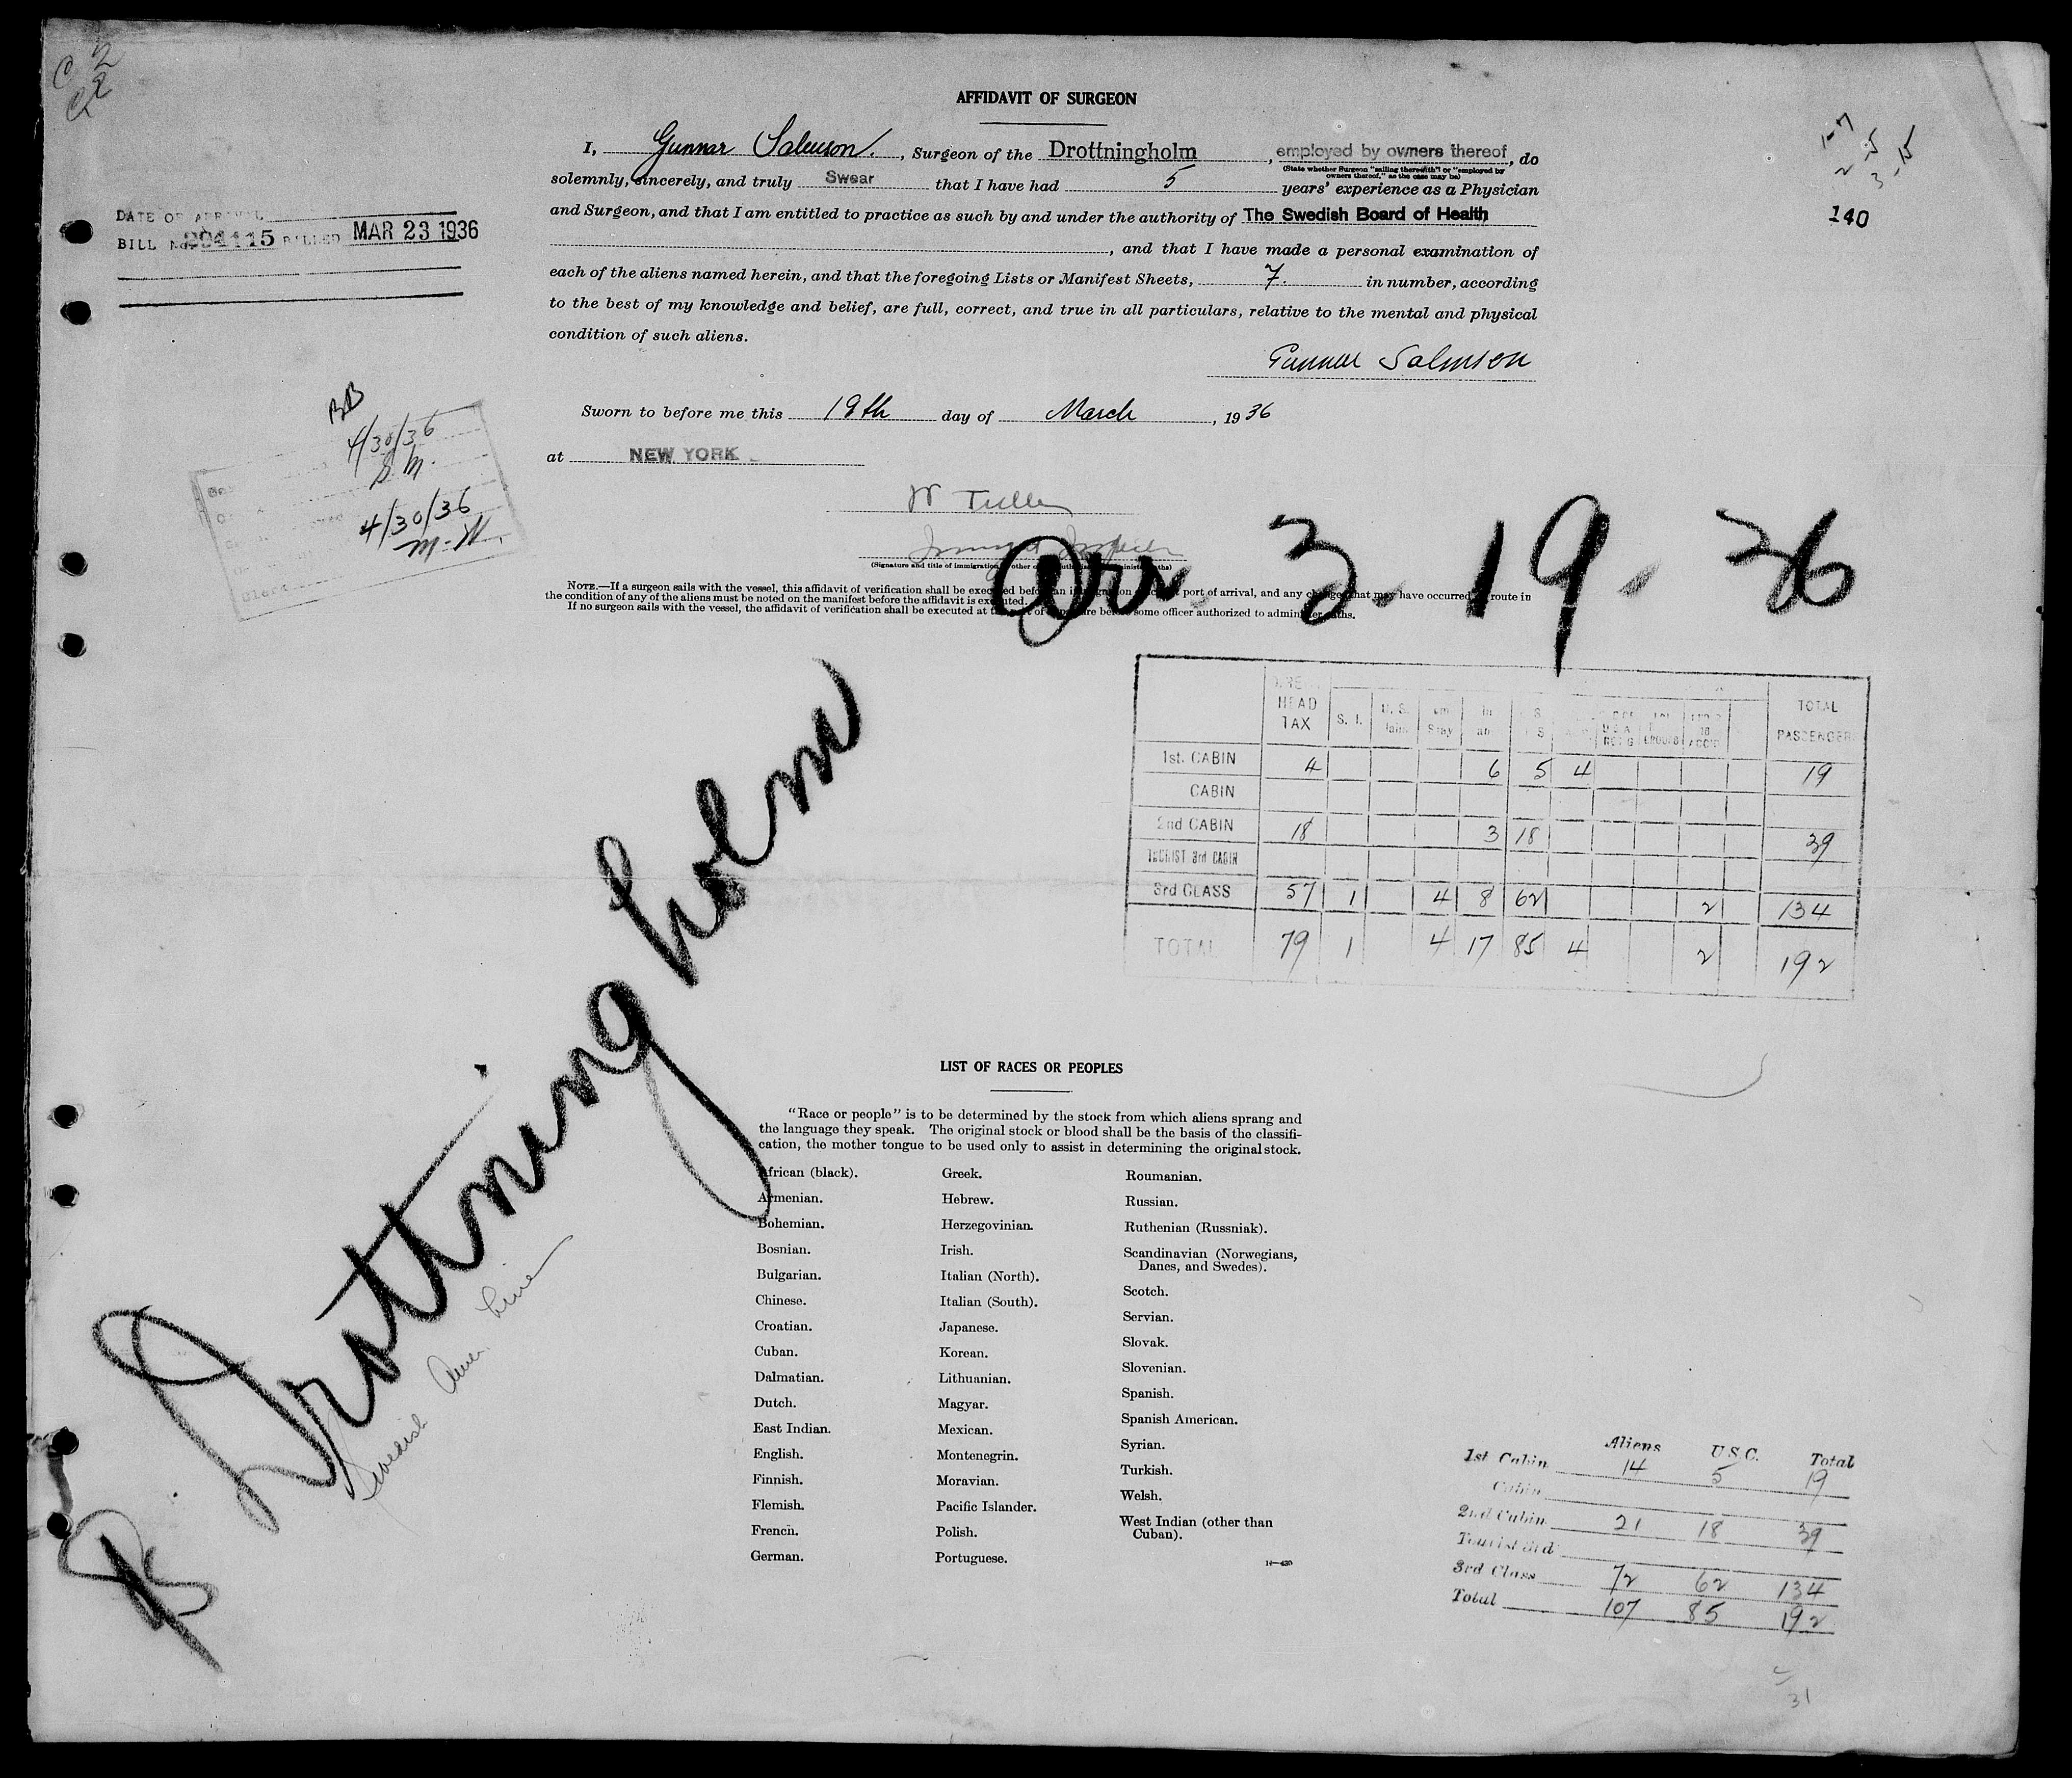 C 2
C 2
AFFIDAVIT OF SURGEON
I, Gunnar Salmson., Surgeon of the Drottningholm, employed by owners thereof, do
(State whether Surgeon "sailing therewith" or "employed by
owners thereof," as the case may be)
solemnly, sincerely, and truly Swear that I have had 5 years' experience as a Physician
and Surgeon, and that I am entitled to practice as such by and under the authority of The Swedish Board of Health
, and that I have made a personal examination of
each of the aliens named herein, and that the foregoing Lists or Manifest Sheets, 7. in number, according
to the best of my knowledge and belief, are full, correct, and true in all particulars, relative to the mental and physical
condition of such aliens.
Gunnar Salmson
Sworn to before me this 19th day of March, 1936
at NEW YORK
1-7
2-5
3-15
140
DATE OF ARRIVAL
BILL No. 994115 BILLED MAR 23 1936
BB
4/30/36
S.M.
4/30/36
M.W.
Clerk
W Tuller
Immigt Inspector
(Signature and title of immigration or other officer authorized to administer oaths)
Arr. 3. 19. 36
NOTE.—If a surgeon sails with the vessel, this affidavit of verification shall be executed before an immigration officer at port of arrival, and any changes that may have occurred en route in
the condition of any of the aliens must be noted on the manifest before the affidavit is executed.
If no surgeon sails with the vessel, the affidavit of verification shall be executed at the port of departure before some officer authorized to administer oaths.
HEAD TAX S. I. U. S. TOTAL PASSENGERS
1st. CABIN 4 6 5 4 19
CABIN
2nd CABIN 18 3 18 39
TOURIST 3rd CABIN
3rd CLASS 57 1 4 8 62 2 134
TOTAL 79 1 4 17 85 4 2 192
Drottningholm
Swedish Amer. Line
LIST OF RACES OR PEOPLES
"Race or people" is to be determined by the stock from which aliens sprang and
the language they speak. The original stock or blood shall be the basis of the classifi-
cation, the mother tongue to be used only to assist in determining the original stock.
African (black).
Armenian.
Bohemian.
Bosnian.
Bulgarian.
Chinese.
Croatian.
Cuban.
Dalmatian.
Dutch.
East Indian.
English.
Finnish.
Flemish.
French.
German.
Greek.
Hebrew.
Herzegovinian.
Irish.
Italian (North).
Italian (South).
Japanese.
Korean.
Lithuanian.
Magyar.
Mexican.
Montenegrin.
Moravian.
Pacific Islander.
Polish.
Portuguese.
Roumanian.
Russian.
Ruthenian (Russniak).
Scandinavian (Norwegians,
Danes, and Swedes).
Scotch.
Servian.
Slovak.
Slovenian.
Spanish.
Spanish American.
Syrian.
Turkish.
Welsh.
West Indian (other than
Cuban).
14—430
Aliens U.S.C. Total
1st Cabin 14 5 19
Cabin
2nd Cabin 21 18 39
Tourist 3rd
3rd Class 72 62 134
Total 107 85 192
31